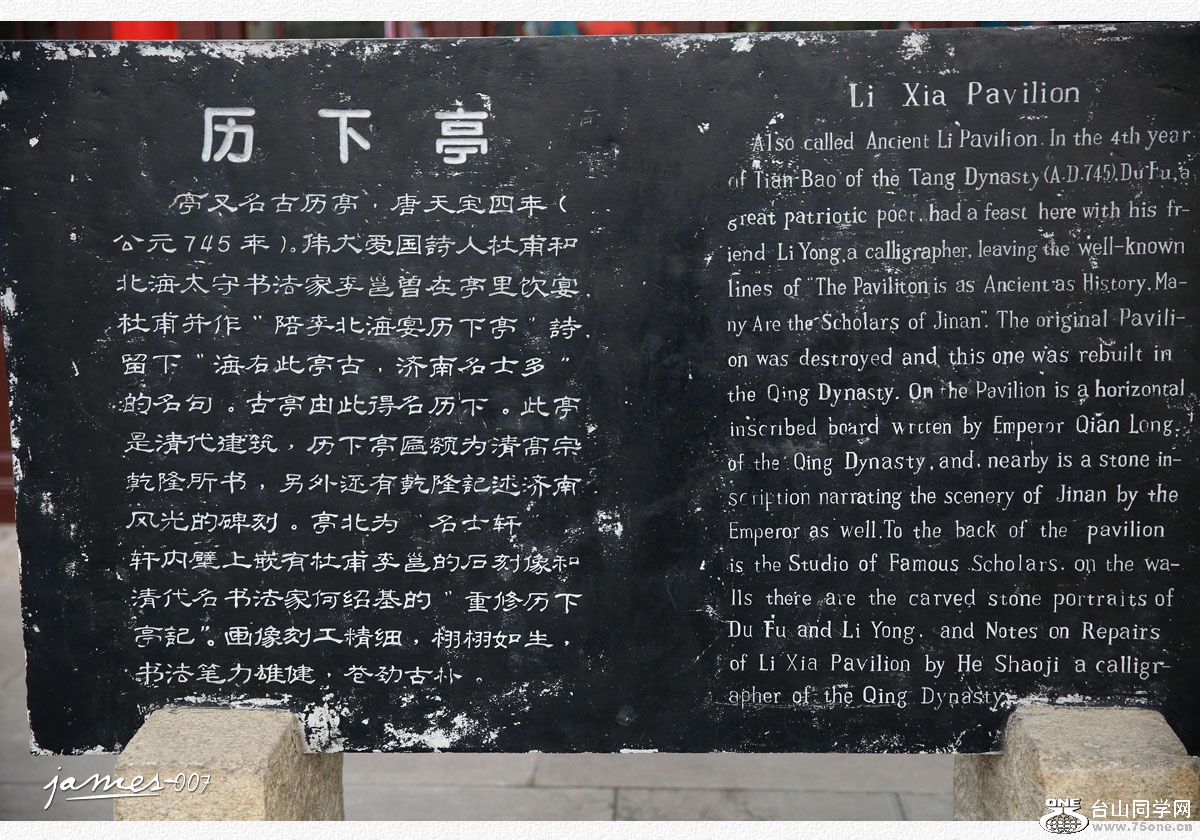 历下亭
亭又名古历亭，唐天宝四年（
公元745年）。伟大爱国詩人杜甫和
北海太守书法家李邕曾在亭里饮宴，
杜甫并作“陪李北海宴历下亭”詩，
留下“海右此亭古，济南名士多”
的名句。古亭由此得名历下。此亭
是清代建筑，历下亭匾额为清高宗
乾隆所书，另外还有乾隆記述济南
风光的碑刻。亭北为 名士轩
轩内壁上嵌有杜甫李邕的石刻像和
清代名书法家何绍基的“重修历下
亭記”。画像刻工精细，栩栩如生，
书法笔力雄健，苍劲古朴。
Li Xia Pavilion
Also called Ancient Li Pavilion. In the 4th year
of Tian Bao of the Tang Dynasty (A.D.745), Du Fu, a
great patriotic poet, had a feast here with his fr-
iend Li Yong, a calligrapher, leaving the well-known
lines of "The Paviliton is as Ancient as History. Ma-
ny Are the Scholars of Jinan". The original Pavili-
on was destroyed and this one was rebuilt in
the Qing Dynasty. On the Pavilion is a horizontal
inscribed board written by Emperor Qian Long,
of the Qing Dynasty, and, nearby is a stone in-
scription narrating the scenery of Jinan by the
Emperor as well. To the back of the pavilion
is the Studio of Famous Scholars. on the wa-
lls there are the carved stone portraits of
Du Fu and Li Yong. and Notes on Repairs
of Li Xia Pavilion by He Shaoji a calligr-
apher of the Qing Dynasty.
james-007
ONE 台山同学网
www.75one.cn